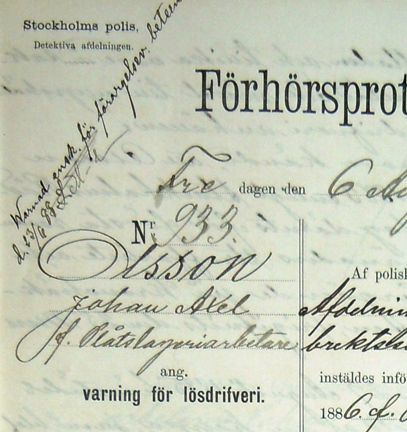 Stockholms polis,
Detektiva afdelningen.
Warnad ånsk. för förargelsev. beteen
d. 23/6 88
Förhörsprot
Fre dagen den 6 Au
Nr 933.
Olsson
Johan Axel
f. Plåtslageriarbetare
ang.
varning för lösdrifveri.
Af polis
Afdelnin
brektsk
instäldes inför
1886. d.